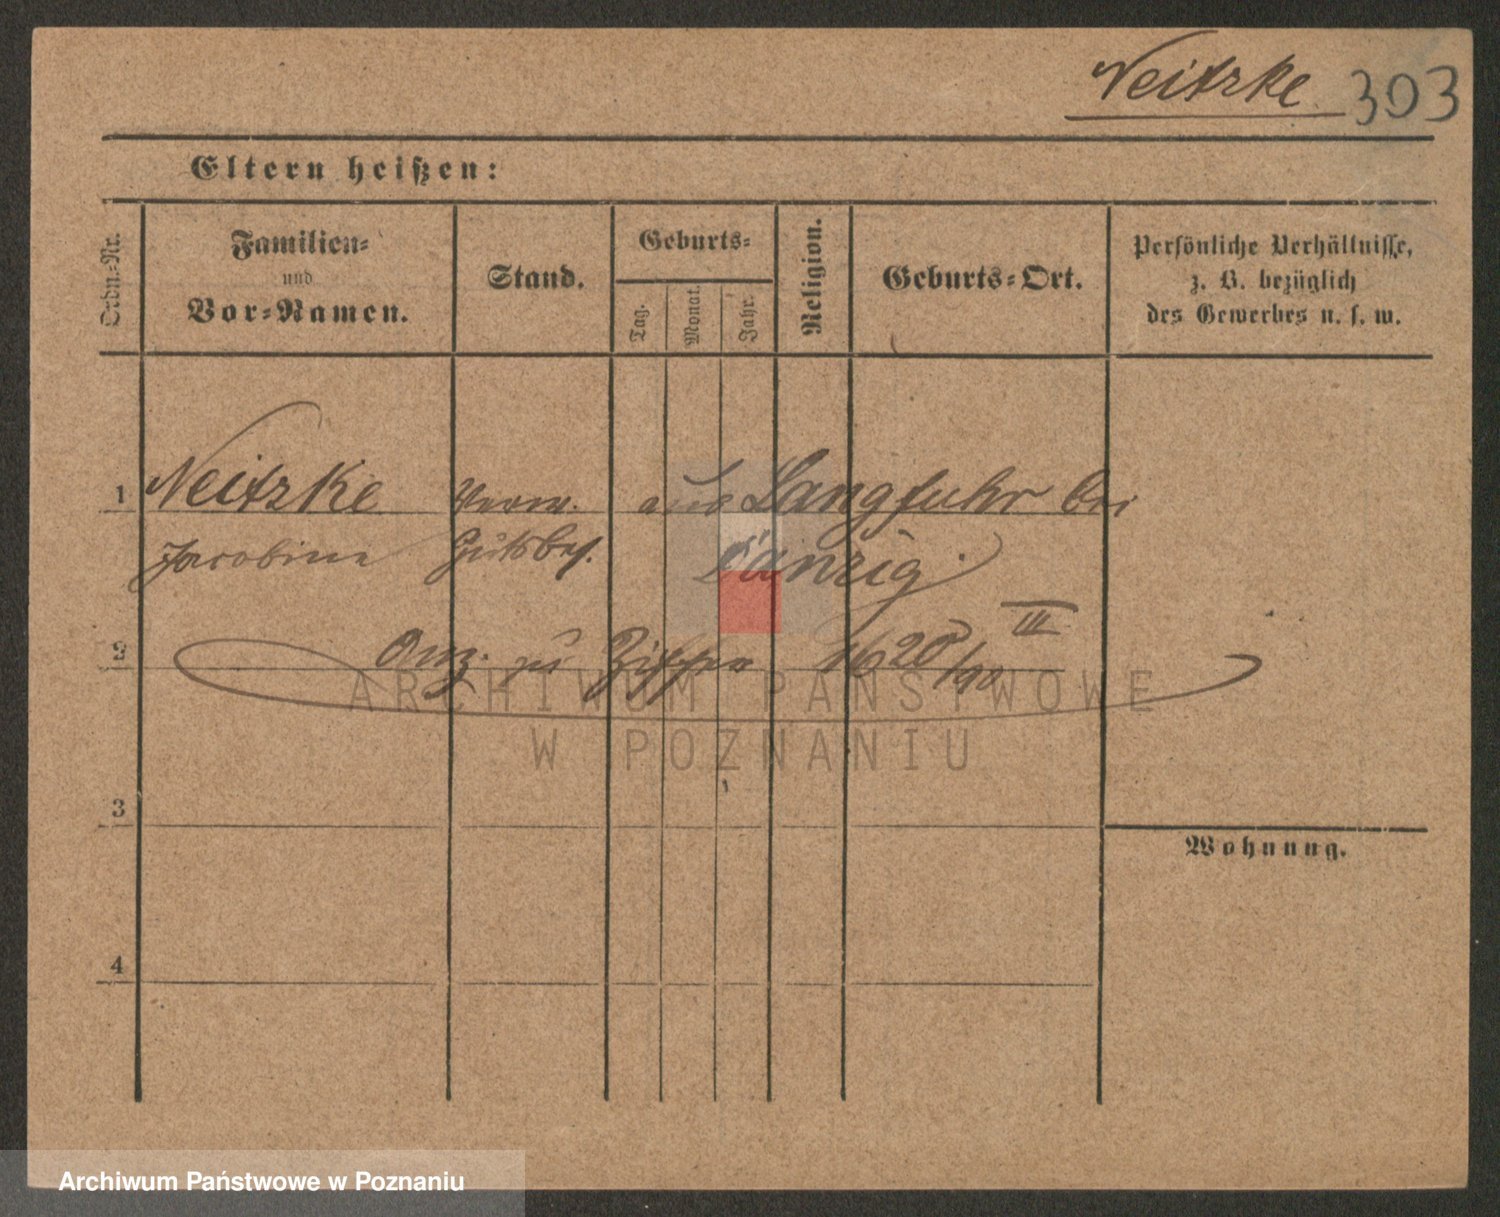 Neitzke 303
Eltern heißen:
Ordn.-Nr.
Familien-
und
Vor-Namen.
Stand.
Geburts-
Tag.
Monat.
Jahr.
Religion.
Geburts-Ort.
Persönliche Verhältnisse,
z. B. bezüglich
des Gewerbes u. s. w.
1 Neitzke Verw. aus Langfuhr bei
Jacobine Gutsbes. Danzig.
2 Anz. zu 1620/90 III
ARCHIWUM PAŃSTWOWE
W POZNANIU
3
Wohnung.
4
Archiwum Państwowe w Poznaniu